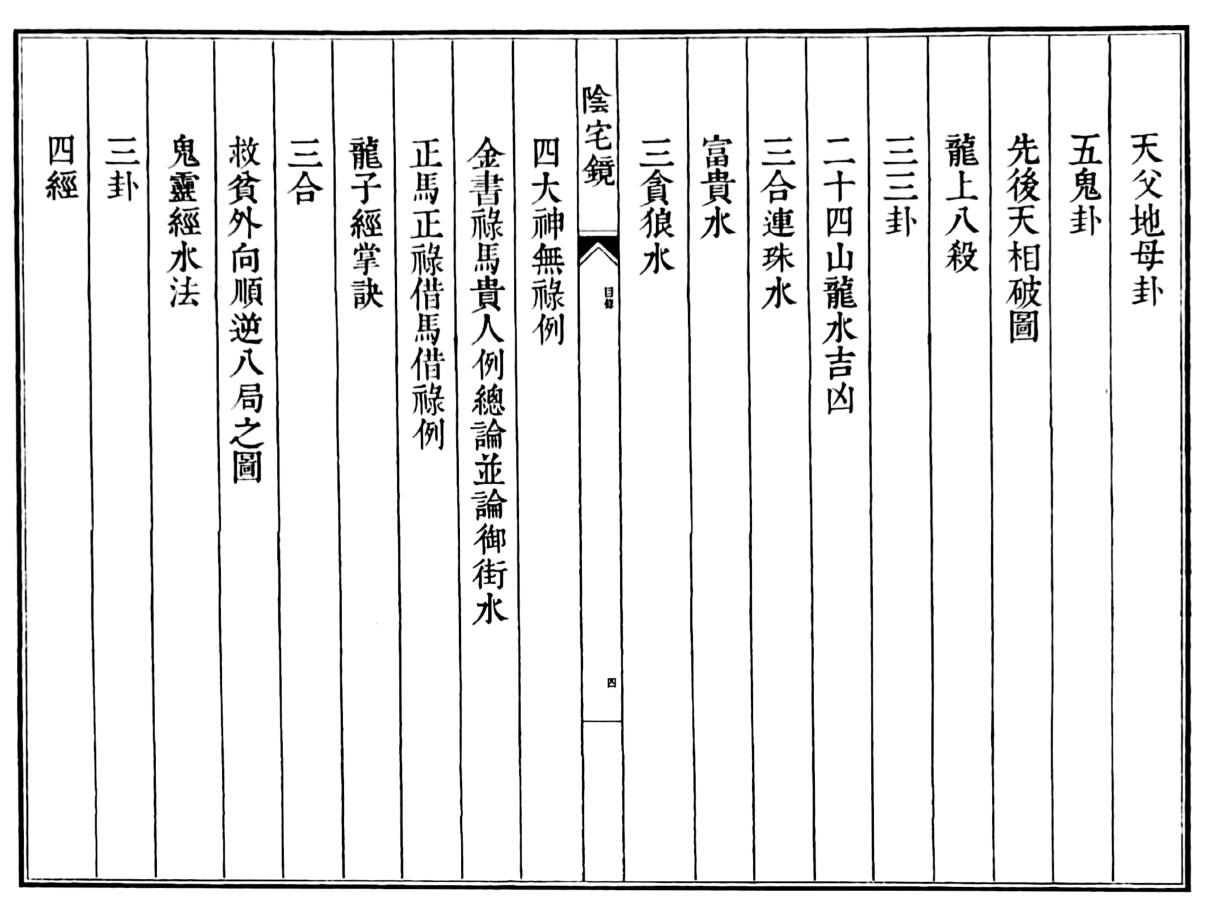 天父地母卦
五鬼卦
先後天相破圖
龍上八殺
三三卦
二十四山龍水吉凶
三合連珠水
富貴水
三貪狼水
陰宅鏡
目錄
四
四大神無祿例
金書祿馬貴人例總論並論御街水
正馬正祿借馬借祿例
龍子經掌訣
三合
救貧外向順逆八局之圖
鬼靈經水法
三卦
四經